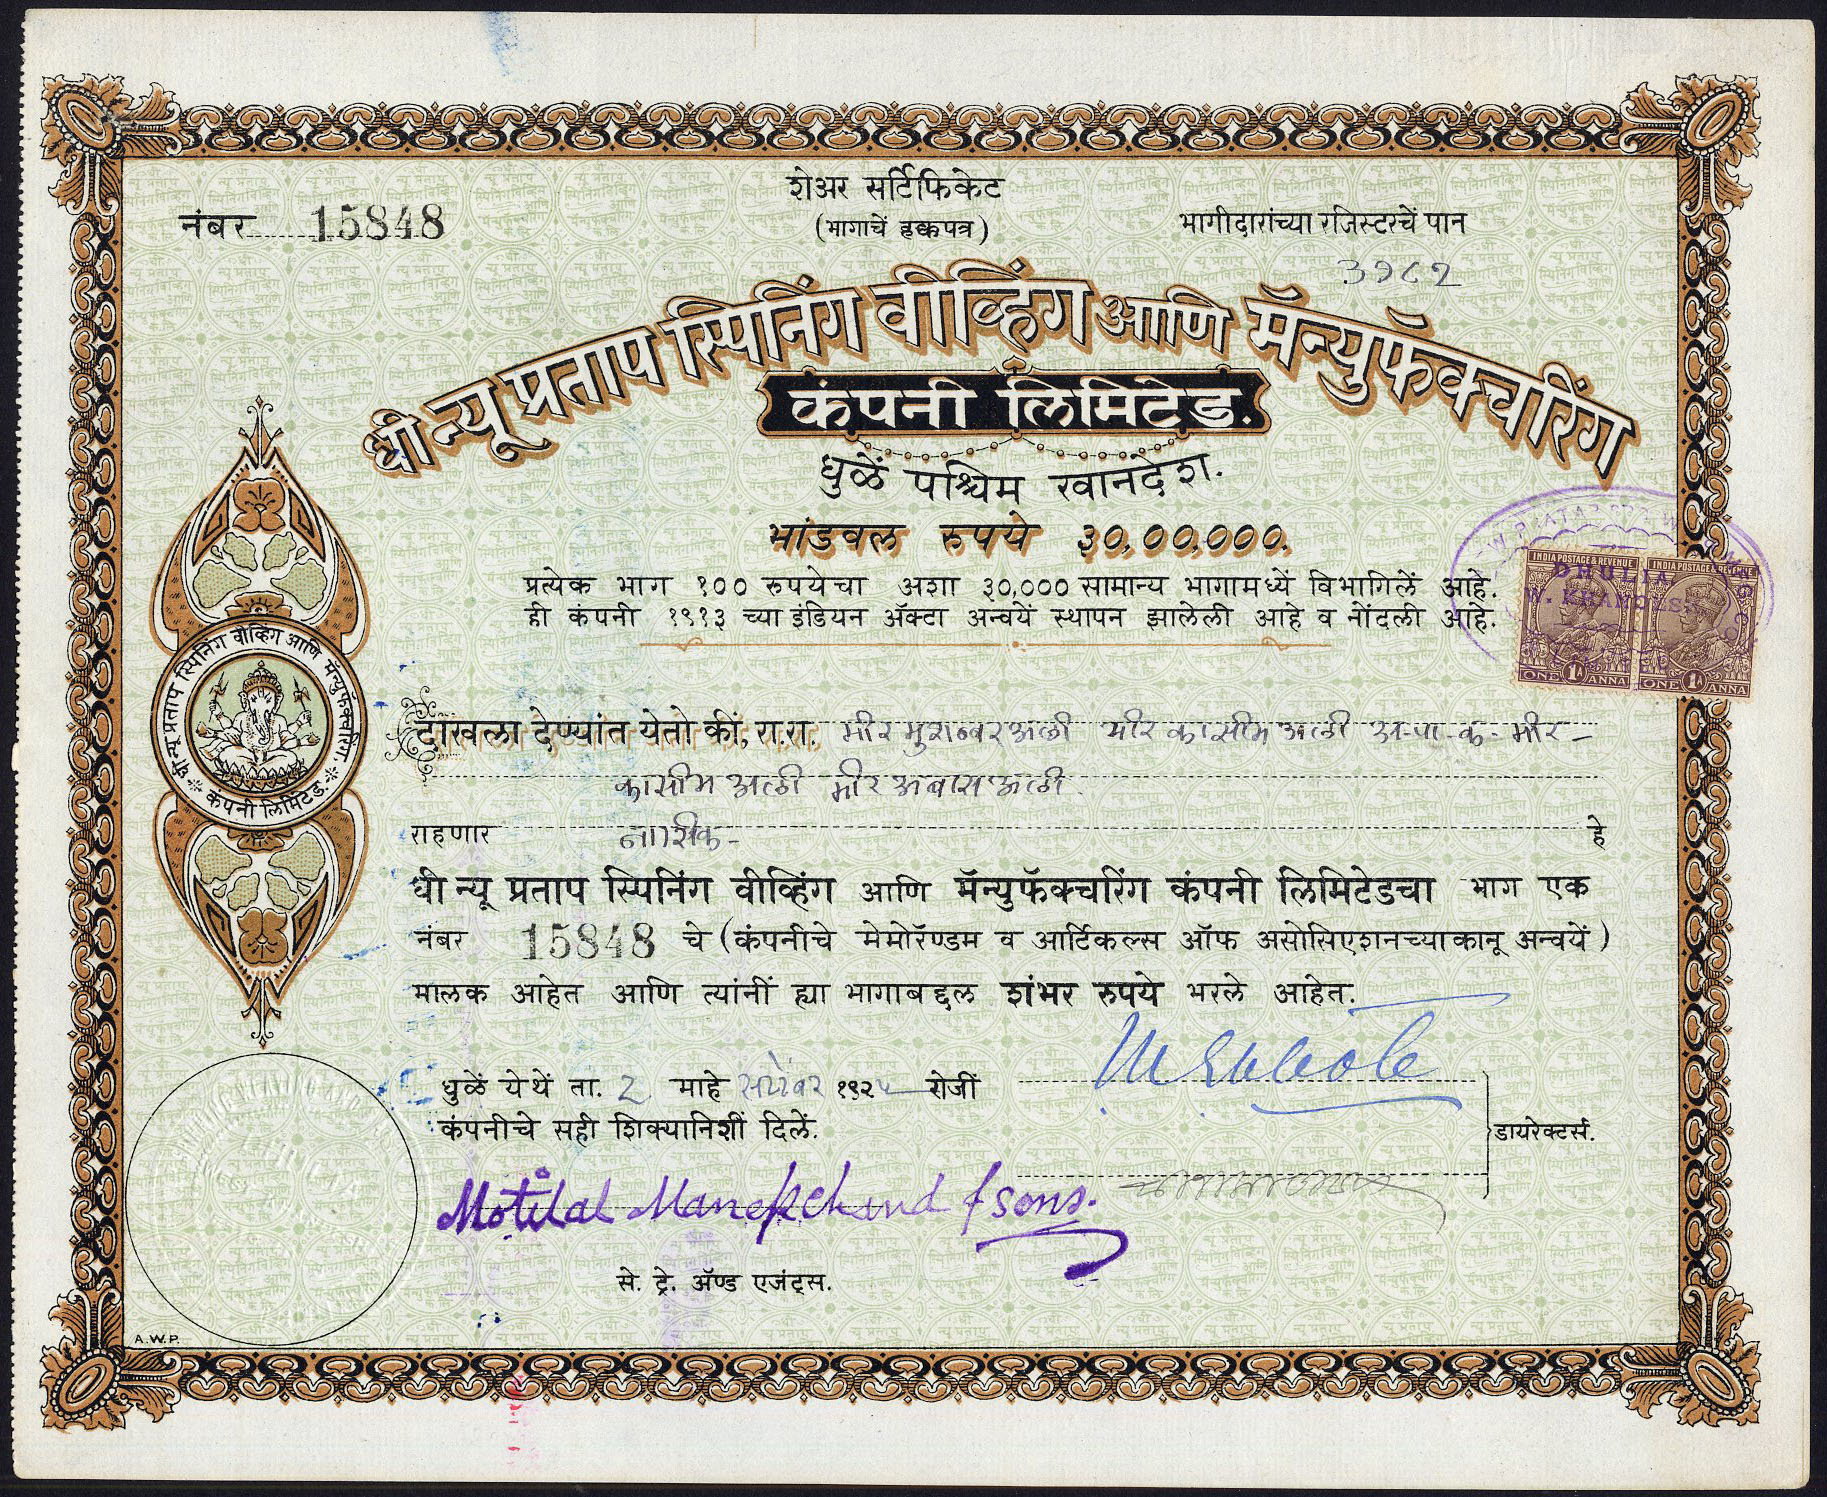 शेअर सर्टिफिकेट
(भागाचें हक्कपत्र)
नंबर 15848
भागीदारांच्या रजिस्टरचें पान
३१८१
धी न्यू प्रताप स्पिनिंग वीव्हिंग आणि मॅन्युफॅक्चरिंग
कंपनी लिमिटेड.
धुळें पश्चिम खानदेश.
भांडवल रुपये ३०,००,०००.
प्रत्येक भाग १०० रुपयेचा अशा ३०,००० सामान्य भागामध्यें विभागिलें आहे.
ही कंपनी १९१३ च्या इंडियन ॲक्टा अन्वयें स्थापन झालेली आहे व नोंदली आहे.
INDIA POSTAGE & REVENUE INDIA POSTAGE & REVENUE
DHULIA
W. KHANDESH
ONE 1A ANNA ONE 1A ANNA
धी न्यू प्रताप स्पिनिंग वीव्हिंग आणि मॅन्युफॅक्चरिंग
कंपनी लिमिटेड.
दाखला देण्यांत येतो कीं, रा.रा. मीर मुशब्बरअली मीर कासीम अली अ-पा-क- मीर-
कासीम अली मीर अबासअली
राहणार नाशीक- हे
धी न्यू प्रताप स्पिनिंग वीव्हिंग आणि मॅन्युफॅक्चरिंग कंपनी लिमिटेडचा भाग एक
नंबर 15848 चे (कंपनीचे मेमोरॅण्डम व आर्टिकल्स ऑफ असोसिएशनच्याकानू अन्वयें)
मालक आहेत आणि त्यांनीं ह्या भागाबद्दल शंभर रुपये भरले आहेत.
धुळें येथें ता. 2 माहे सप्टेंबर १९२५ रोजीं
कंपनीचे सही शिक्यानिशीं दिलें.
डायरेक्टर्स.
Motilal Manekchand & sons.
से. ट्रे. ॲण्ड एजंट्स.
A.W.P.